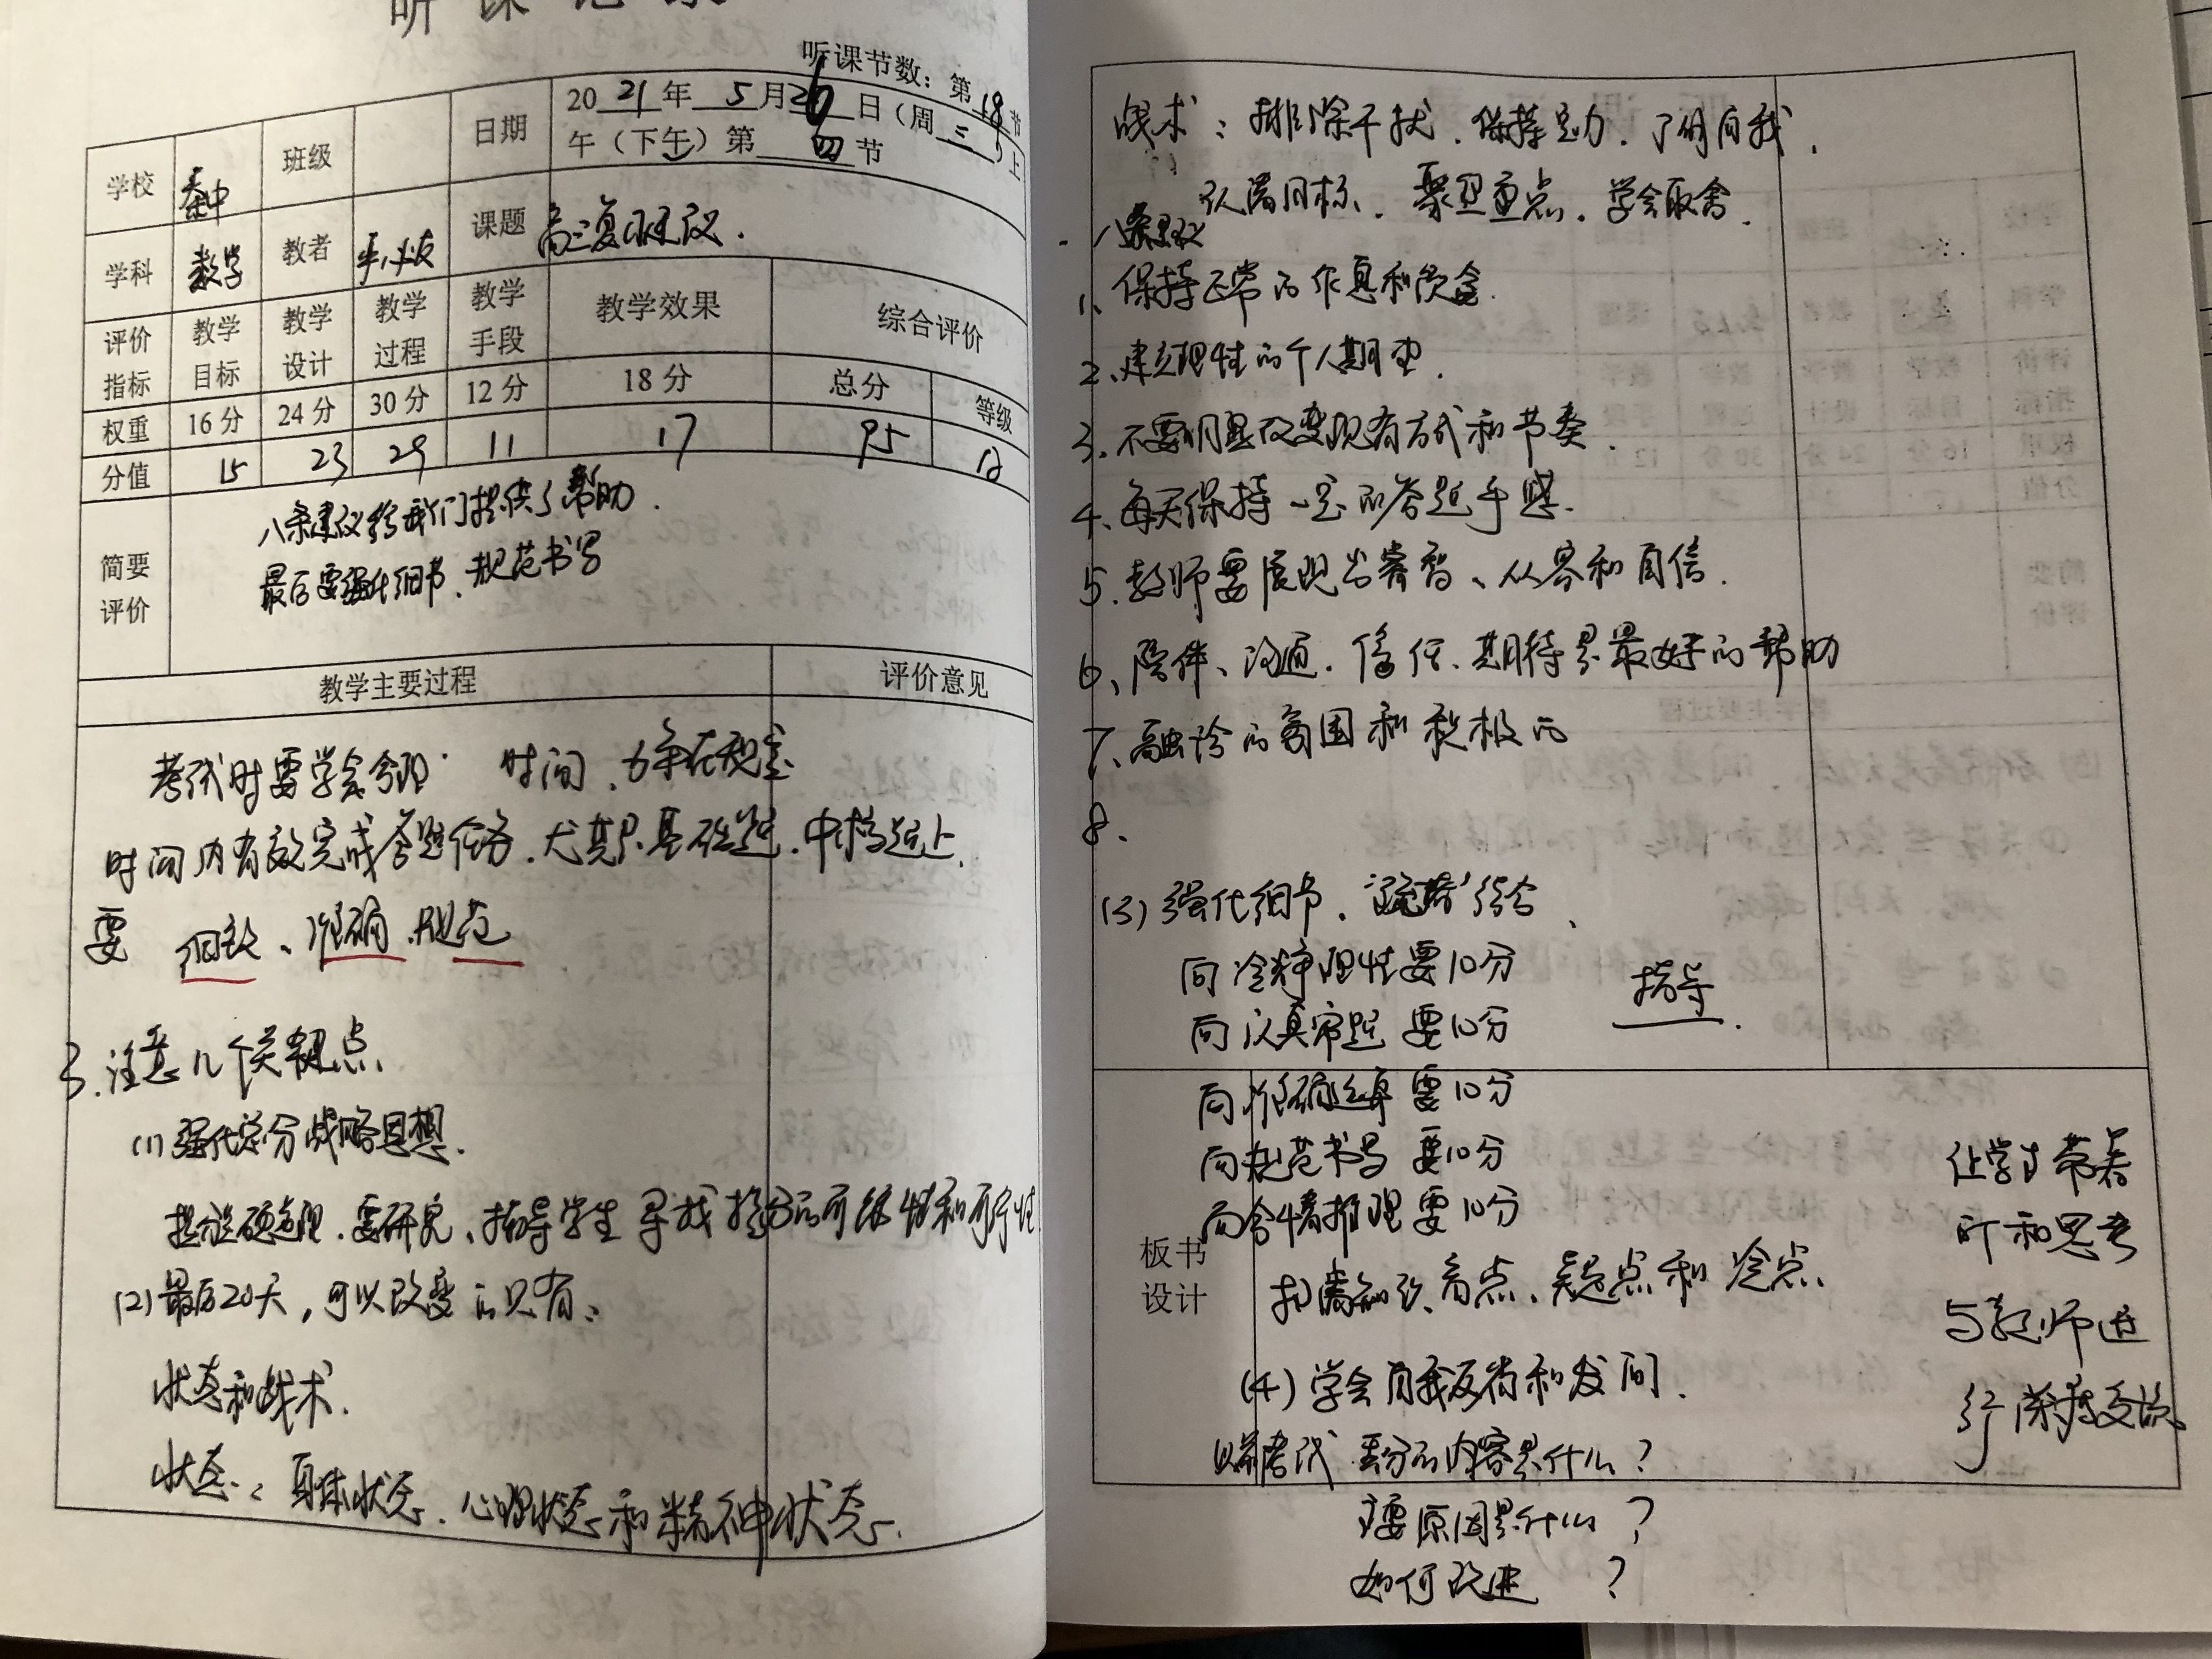 听课记录
听课节数：第18节
学校 秦中 班级 日期 2021年5月26日（周三）上
午（下午）第四节
学科 数学 教者 课题 高三复习建议.
评价指标 教学目标 教学设计 教学过程 教学手段 教学效果 综合评价
权重 16分 24分 30分 12分 18分 总分 等级
分值 15 23 29 11 17 95
简要评价
八条建议给我们提供了帮助.
最后要强化细节、规范书写
教学主要过程 评价意见
考试时要学会合理 时间、力争在规定
时间内有效完成答题任务、尤其是基础题、中档题上、
要 细致、准确、规范
3.注意几个关键点
(1)强化总分战略思想.
要研究、指导学生寻找提分的可能性和可行性
(2)最后20天，可以改变的只有：
状态和战术.
状态：身体状态、心理状态和精神状态.
战术：排除干扰、保持定力、了解自我、
认清目标、聚焦重点、学会取舍.
八条建议
1、保持正常的作息和饮食.
2、建立理性的个人期望.
3、不要明显改变现有方式和节奏.
4、每天保持一定的答题手感.
5.教师要展现出睿智、从容和自信.
6、陪伴、沟通、信任、期待是最好的帮助
7、融洽的氛围和积极的
8、
(3)强化细节、结合、
向冷静理性要10分
向认真审题要10分
指导.
向准确运算要10分
向规范书写要10分
向合情推理要10分
板书设计
扫清知识盲点、疑点和冷点、
(4)学会自我反省和发问.
考试丢分的内容是什么？
主要原因是什么？
如何改进？
让学生带着
所和思考
与教师进
行深度交流